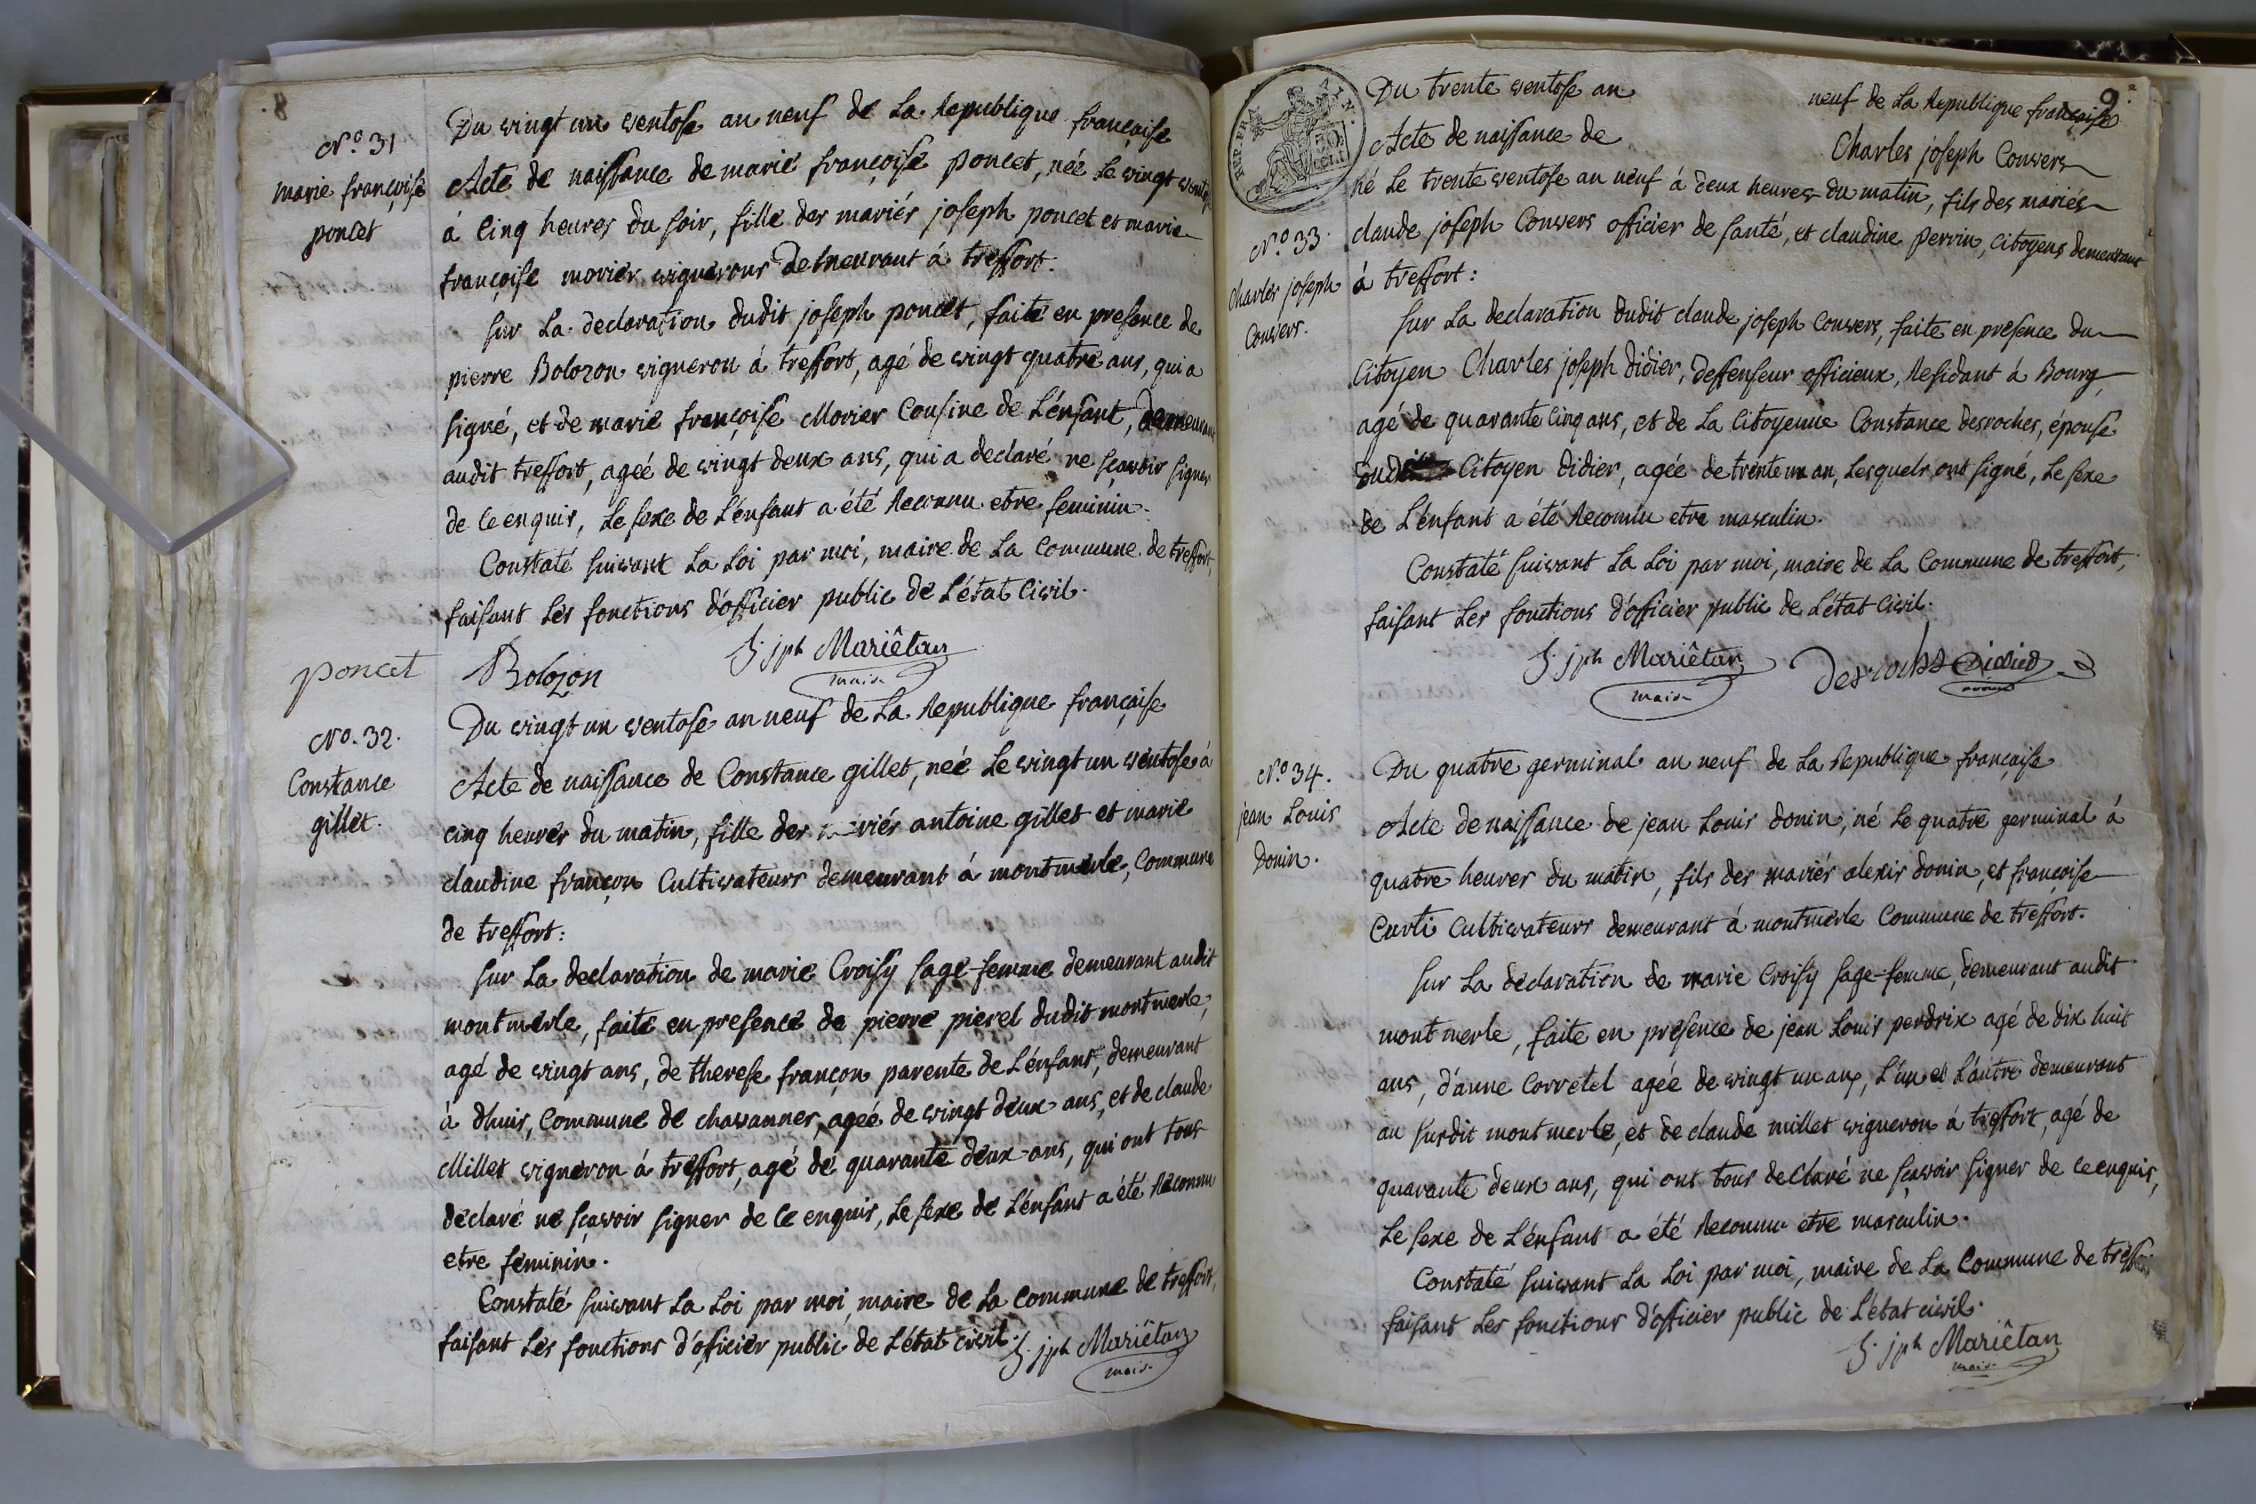 8
N.o 31
marie françoise
poncet
Du vingt un ventose an neuf de la Republique française
Acte de naissance de marie françoise poncet, née le vingt ventose
á cinq heures du soir, fille des mariés joseph poncet et marie
françoise morier vignerons demeurant á treffort.
sur la declaration dudit joseph poncet, faite en presence de
pierre Bolozon vigneron á treffort, agé de vingt quatre ans, qui a
signé, et de marie françoise Morier Cousine de L'énfant, demeurant
audit treffort, ageé de vingt deux ans, qui a declaré ne sçavoir signer
de ce enquis, le sexe de L'énfant a été Reconnu etre feminin.
Constaté suivant La Loi par moi, maire de La Commune de treffort,
faisant les fonctions d'officier public de L'état Civil.
poncet Bolozon J. jph Mariêtan
maire
N.o 32.
Constance
gillet.
Du vingt un ventose an neuf de La Republique française
Acte de naissance de Constance gillet, neé le vingt un ventose á
cinq heures du matin, fille des mariés antoine gillet et marie
claudine françon Cultivateurs demeurant á montmerle, Commune
de treffort:
sur La declaration de marie Croisy sage-femme demeurant audit
montmerle, faite en presence de pierre pierel dudit montmerle,
agé de vingt ans, de therese françon parente de L'énfant, demeurant
á dhuis, Commune de chavannes, ageé de vingt deux ans, et de claude
Millet vigneron á treffort, agé de quarante deux ans, qui ont tous
déclaré ne sçavoir signer de ce enquis, le sexe de L'énfant a été Reconnu
etre feminin.
Constaté suivant La Loi par moi, maire de La Commune de treffort,
faisant les fonctions d'officier public de L'état civil. J. jph Mariêtan
maire
9.
REP. FRA. AIN.
Du trente ventose an neuf de La Republique française
Acte de naissance de Charles joseph Convers
né le trente ventose an neuf á deux heures du matin, fils des mariés
N.o 33.
Charles joseph
Convers.
claude joseph Convers officier de santé, et claudine perrin, Citoyens demeurant
á treffort:
sur La declaration dudit claude joseph Convers, faite en presence du
Citoyen Charles joseph Didier, deffenseur officieux, Residant á Bourg,
agé de quarante cinq ans, et de La Citoyenne Constance desroches, épouse
dudit Citoyen Didier, agée de trente un an, lesquels ont signé, le sexe
de L'énfant a été Reconnu etre masculin.
Constaté suivant La Loi par moi, maire de La Commune de treffort,
faisant les fonctions d'officier public de L'état Civil.
J. jph Mariêtan Desroches Didier
maire
N.o 34.
jean Louis
Donin.
Du quatre germinal an neuf de La Republique française
Acte de naissance de jean Louis donin, né le quatre germinal á
quatre heures du matin, fils des mariés alexis donin, et françoise
Curti Cultivateurs demeurant á montmerle Commune de treffort.
sur La déclaration de marie Croisy sage-femme, demeurant audit
montmerle, faite en presence de jean Louis perdrix agé de dix huit
ans, d'anne Corretel agée de vingt un ans, L'un et L'autre demeurant
au susdit montmerle, et de claude millet vigneron á treffort, agé de
quarante deux ans, qui ont tous declaré ne sçavoir signer de ce enquis,
Le sexe de L'énfant a été Reconnu etre masculin.
Constaté suivant La Loi par moi, maire de La Commune de treffort,
faisant les fonctions d'officier public de L'état civil.
J. jph Mariêtan
maire